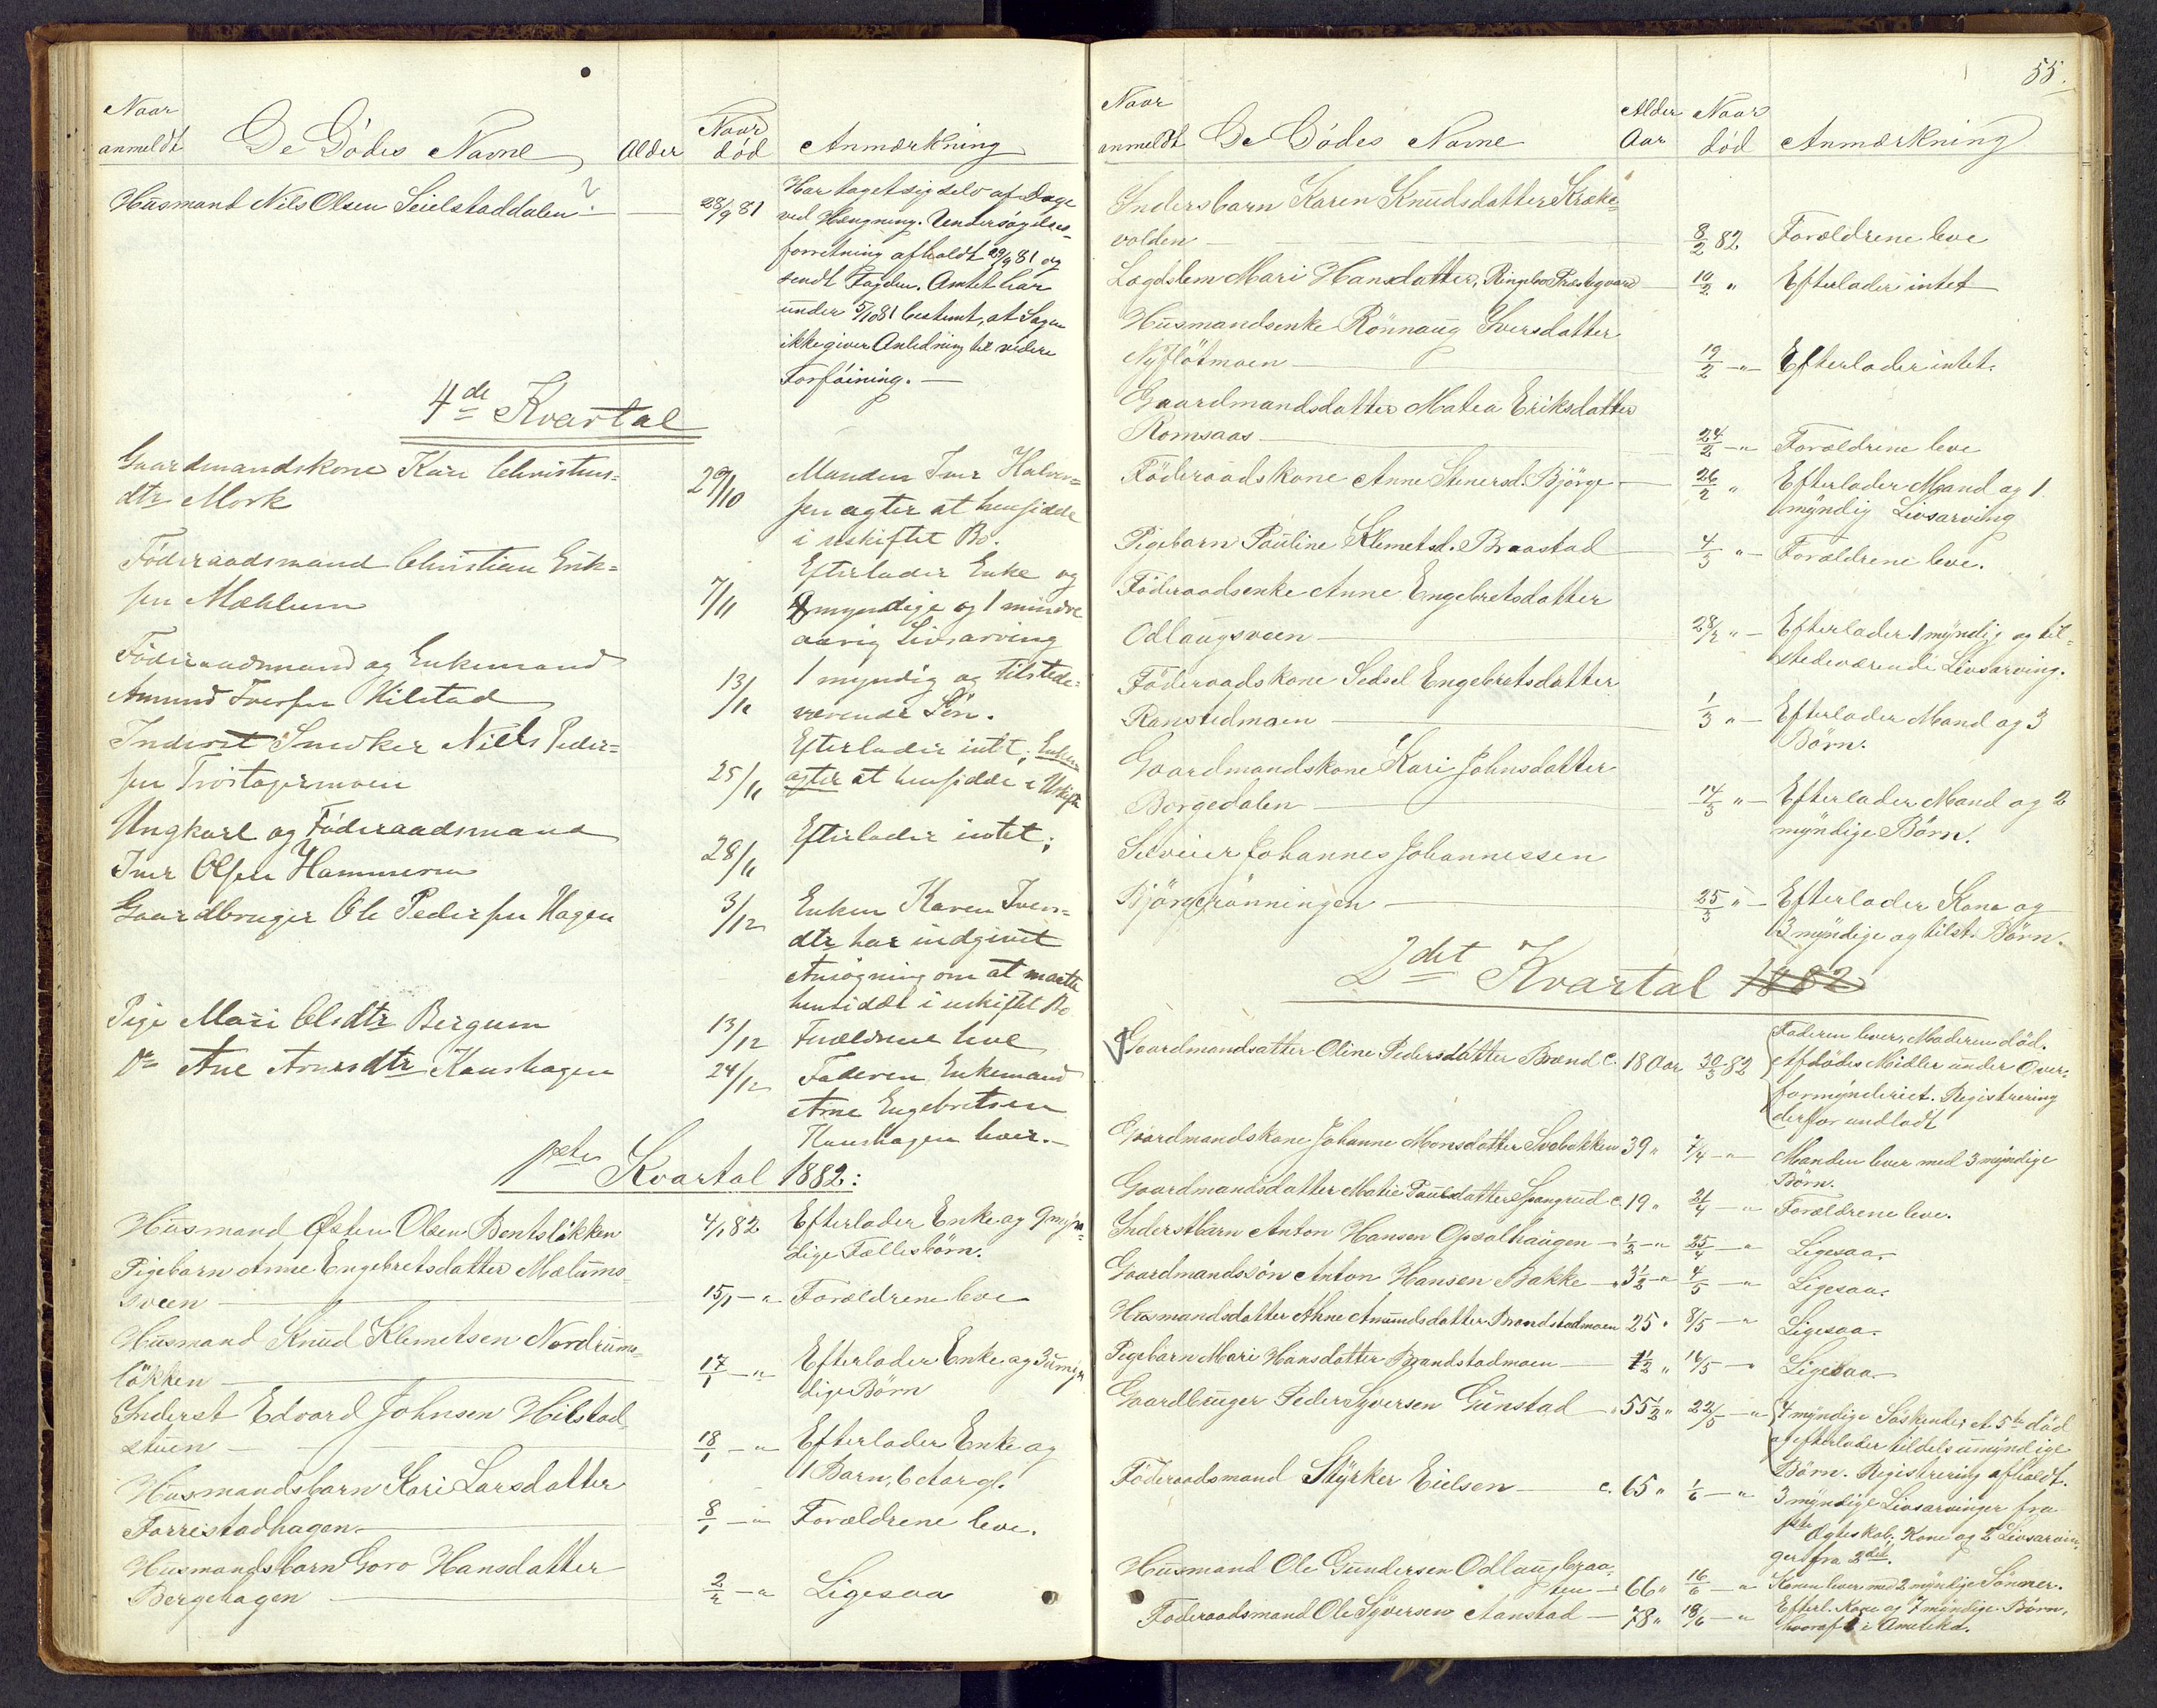 Naar
anmeldt De Dödes Navne Alder Naar död Anmærkning
Husmand Nils Olsen Seielstaddalen ? 28/9 81 Har taget sig selv af Dage
ved Hængning. Undersøgelses-
forretning afholdt 29/9 81 og
sendt Fogden. Amtet har
under 5/10 81 bestemt, at Sagen
ikke giver Anledning til videre
Forföining. —
4de Kvartal
Gaardmandskone Kari Christens-
dtr Mork 29/10 Manden Iver Halvor-
sen agter at hensidde
i uskiftet Bo.
Föderaadsmand Christian Erik-
sen Mæhlum 7/11 Efterlader Enke og
myndige og 1 mindre
aarig Livsarving
Föderaadsmand og Enkemand
Amund Iversen Hilstad 13/11 1 myndig og tilstede-
værende Sön.
Inderst Snedker Niels Peder-
sen Trostagermoen 25/11 Efterlader intet; Enken
agter at hensidde i Uskift
Ungkarl og Föderaadsmand
Iver Olsen Hammeren 28/11 Efterlader intet;
Gaardbruger Ole Pedersen Hagen 3/12 Enken Karen Ivers-
dtr har indgivet
Ansögning om at maatte
hensidde i uskiftet Bo
Pige Mari Olsdtr Bergum 13/12 Forældrene leve
Do Ane Arnesdtr Kanshagen 24/12 Faderen Enkemand
Arne Engebretsen
Kanshagen lever. —
1ste Kvartal 1882:
Husmand Østen Olsen Bentslökken 4/1 82 Efterlader Enke og 9 myn-
dige Fællesbörn.
Pigebarn Anne Engebretsdatter Mælums-
sveen 15/1 — " Forældrene leve
Husmand Knud Klemetsen Nordrums-
lökken 17/1 — " Efterlader Enke og 3 umyn
dige Börn
Inderst Edvard Johnsen Hilstad-
stuen 18/1 — " Efterlader Enke og
1 Barn, 6 Aar gl.
Husmandsbarn Kari Larsdatter
Forristadhagen 8/1 — " Forældrene leve.
Husmandsbarn Goro Hansdatter
Bergehagen 2/2 — " Ligesaa
55.
Naar
anmeldt De Dödes Navne Alder Aar Naar död Anmærkning
Inderstbarn Karen Knudsdatter Kræke-
volden 8/2 82 Forældrene leve
Lægdslem Mari Hansdatter, Ringebo Præstegaard 10/2 " Efterlader intet
Husmandsenke Rönnaug Iversdatter
Nyflötmoen 19/2 — " — Efterlader intet.
Gaardmandsdatter Matea Eriksdatter
Romsaas 24/2 — " Forældrene leve
Föderaadskone Anne Stenersd. Björge 26/2 " Efterlader Mand og 1
myndig Livsarving
Pigebarn Pauline Klemetsd. Braastad 4/3 " — Forældrene leve.
Föderaadsenke Anne Engebretsdatter
Odlaugsveen 28/2 " — Efterlader 1 myndig og til-
stedeværende Livsarving.
Föderaadskone Sedsel Engebretsdatter
Ranstedmoen 1/3 " — Efterlader Mand og 3
Börn.
Gaardmandskone Kari Johnsdatter
Borgedalen 14/3 " — Efterlader Mand og 2
myndige Börn.
Selveier Johannes Johannessen
Björgerönningen 25/3 " — Efterlader Kone og
3 myndige og tilst. Börn.
2det Kvartal 1882
Gaardmandsatter Oline Pedersdatter Brænd c. 18 Aar 30/3 82 Faderen lever, Moderen död.
Afdödes Midler under Over-
formynderiet. Registrering
derfor undladt
Gaardmandskone Johanne Monsdatter Svebakken 39 " 7/4 — " Manden lever med 3 myndige
Börn.
Gaardmandsdatter Matie Paulsdatter Spangrud c. 19 " 21/4 — " Forældrene leve.
Inderstbarn Anton Hansen Opsalhaugen 1/2 — " 25/4 — " Ligesaa.
Gaardmandssön Anton Hansen Bakke 3 1/2 — " 4/5 — " Ligesaa.
Husmandsdatter Ahne Amundsdatter Brandstadmoen 25 " 8/5 — " Ligesaa.
Pigebarn Mari Hansdatter Brandstadmoen 1 1/2 " 16/5 — " Ligesaa.
Gaardbruger Peder Syversen Gunstad 55 1/2 " 22/5 — " 4 myndige Söskende. et. 5te död
og efterlader tildels umyndige
Börn. Registrering afholdt.
Föderaadsmand Styrker Eielsen c. 65 " 1/6 — " 3 myndige Livsarvinger fra
1ste Ægteskab; Kone og 2 Livsarvin-
ger fra 2det.
Husmand Ole Gundersen Odlaugbraa-
ten 66 " 16/6 — " Konen lever med 2 myndige Sönner.
Föderaadsmand Ole Syversen Aanstad 78 " 18/6 — " Efterl. Kone og 7 myndige Börn,
hvoraf 1 i Amerika.